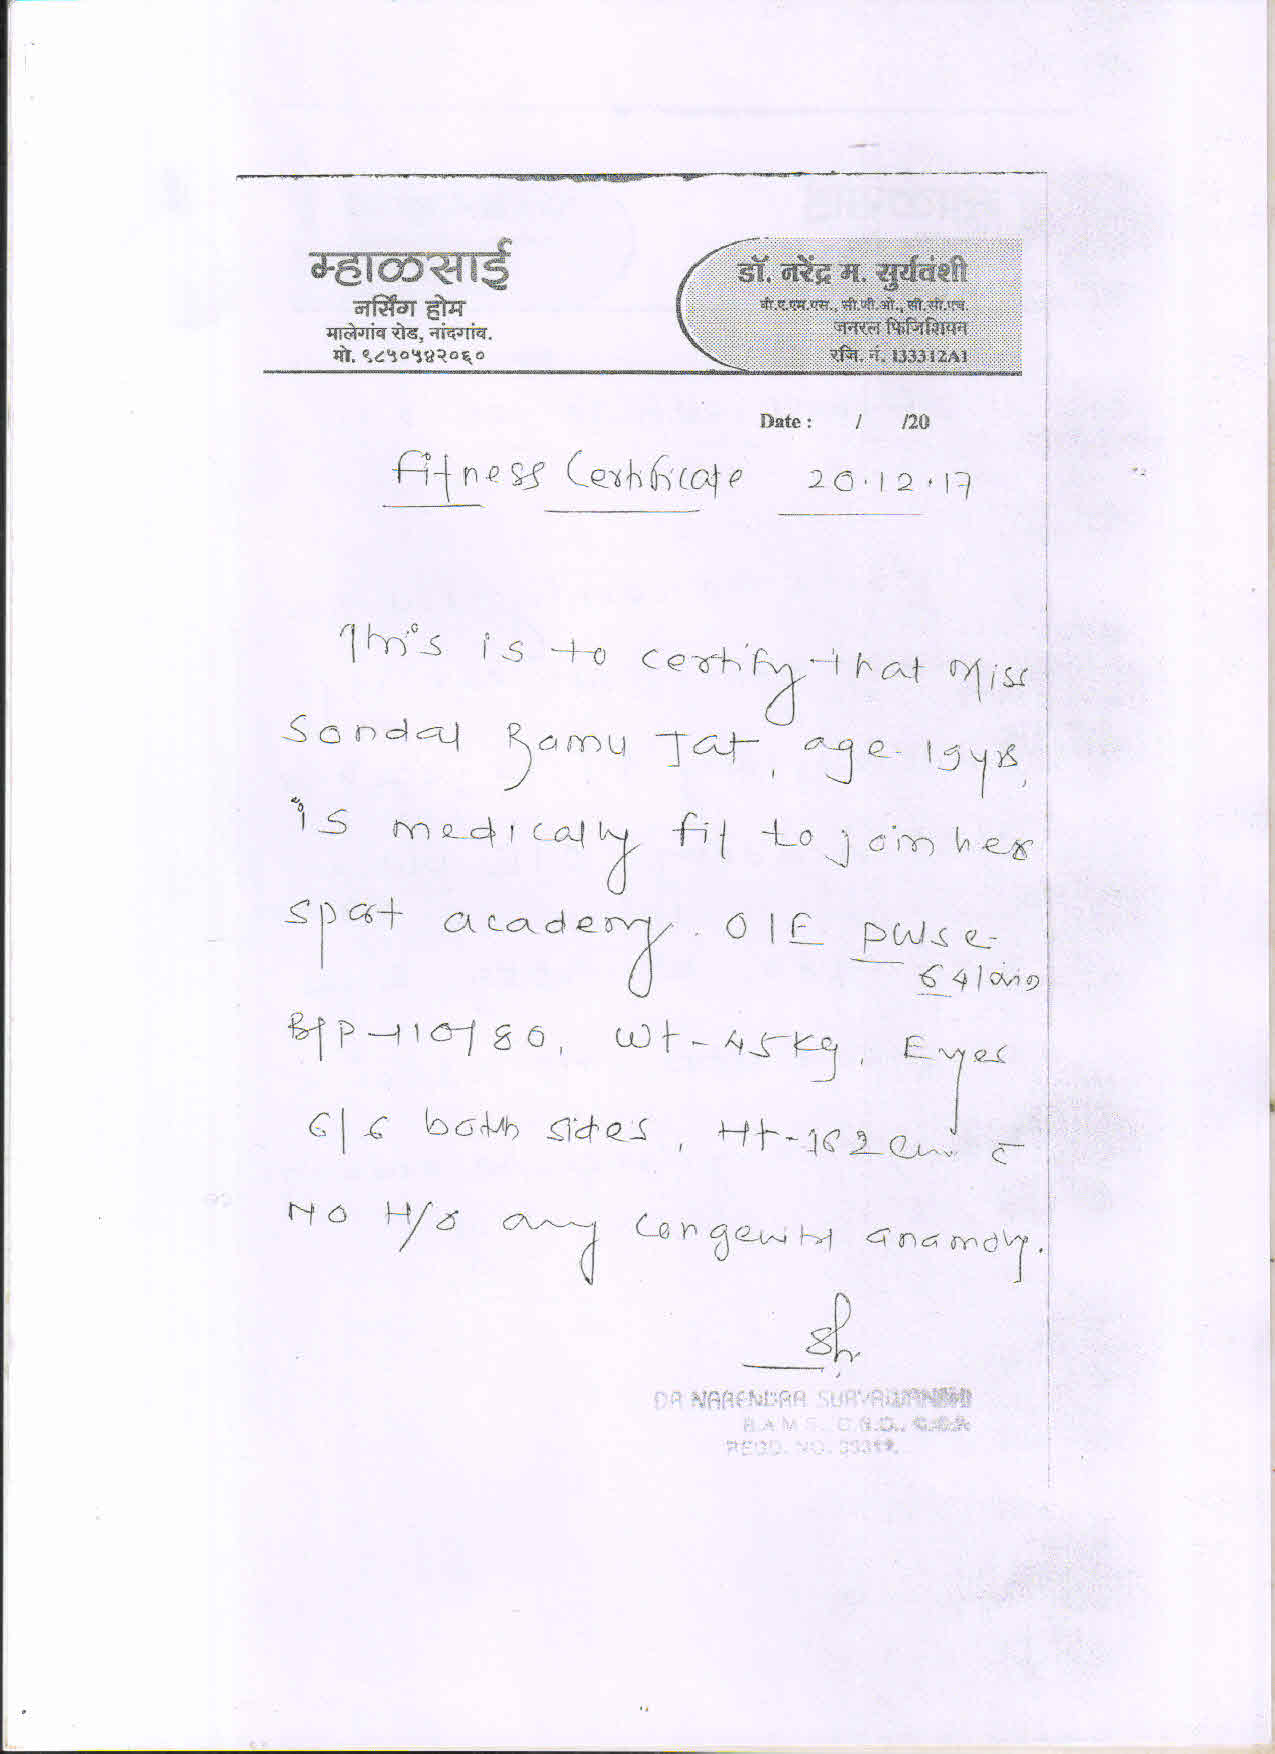 म्हाळसाई
नर्सिंग होम
मालेगांव रोड, नांदगांव.
मो. ९८५०५४२०६०
डॉ. नरेंद्र म. सुर्यवंशी
बी.ए.एम.एस., सी.जी.ओ., सी.सी.एच.
जनरल फिजिशियन
रजि. नं. I33312A1
Date : / /20
Fitness Certificate 20.12.17
This is to certify that Miss
Sondal Ramu Jat, age 19yrs,
is medically fit to join her
sport academy. O/E pulse
64/min
B/P-110/80, Wt-45Kg, Eyes
6/6 both sides, Ht-162cm c̄
No H/o any congenital anamoly.
DR NARENDRA SURYAWANSHI
B.A.M.S., C.G.O.,
REGD. NO.